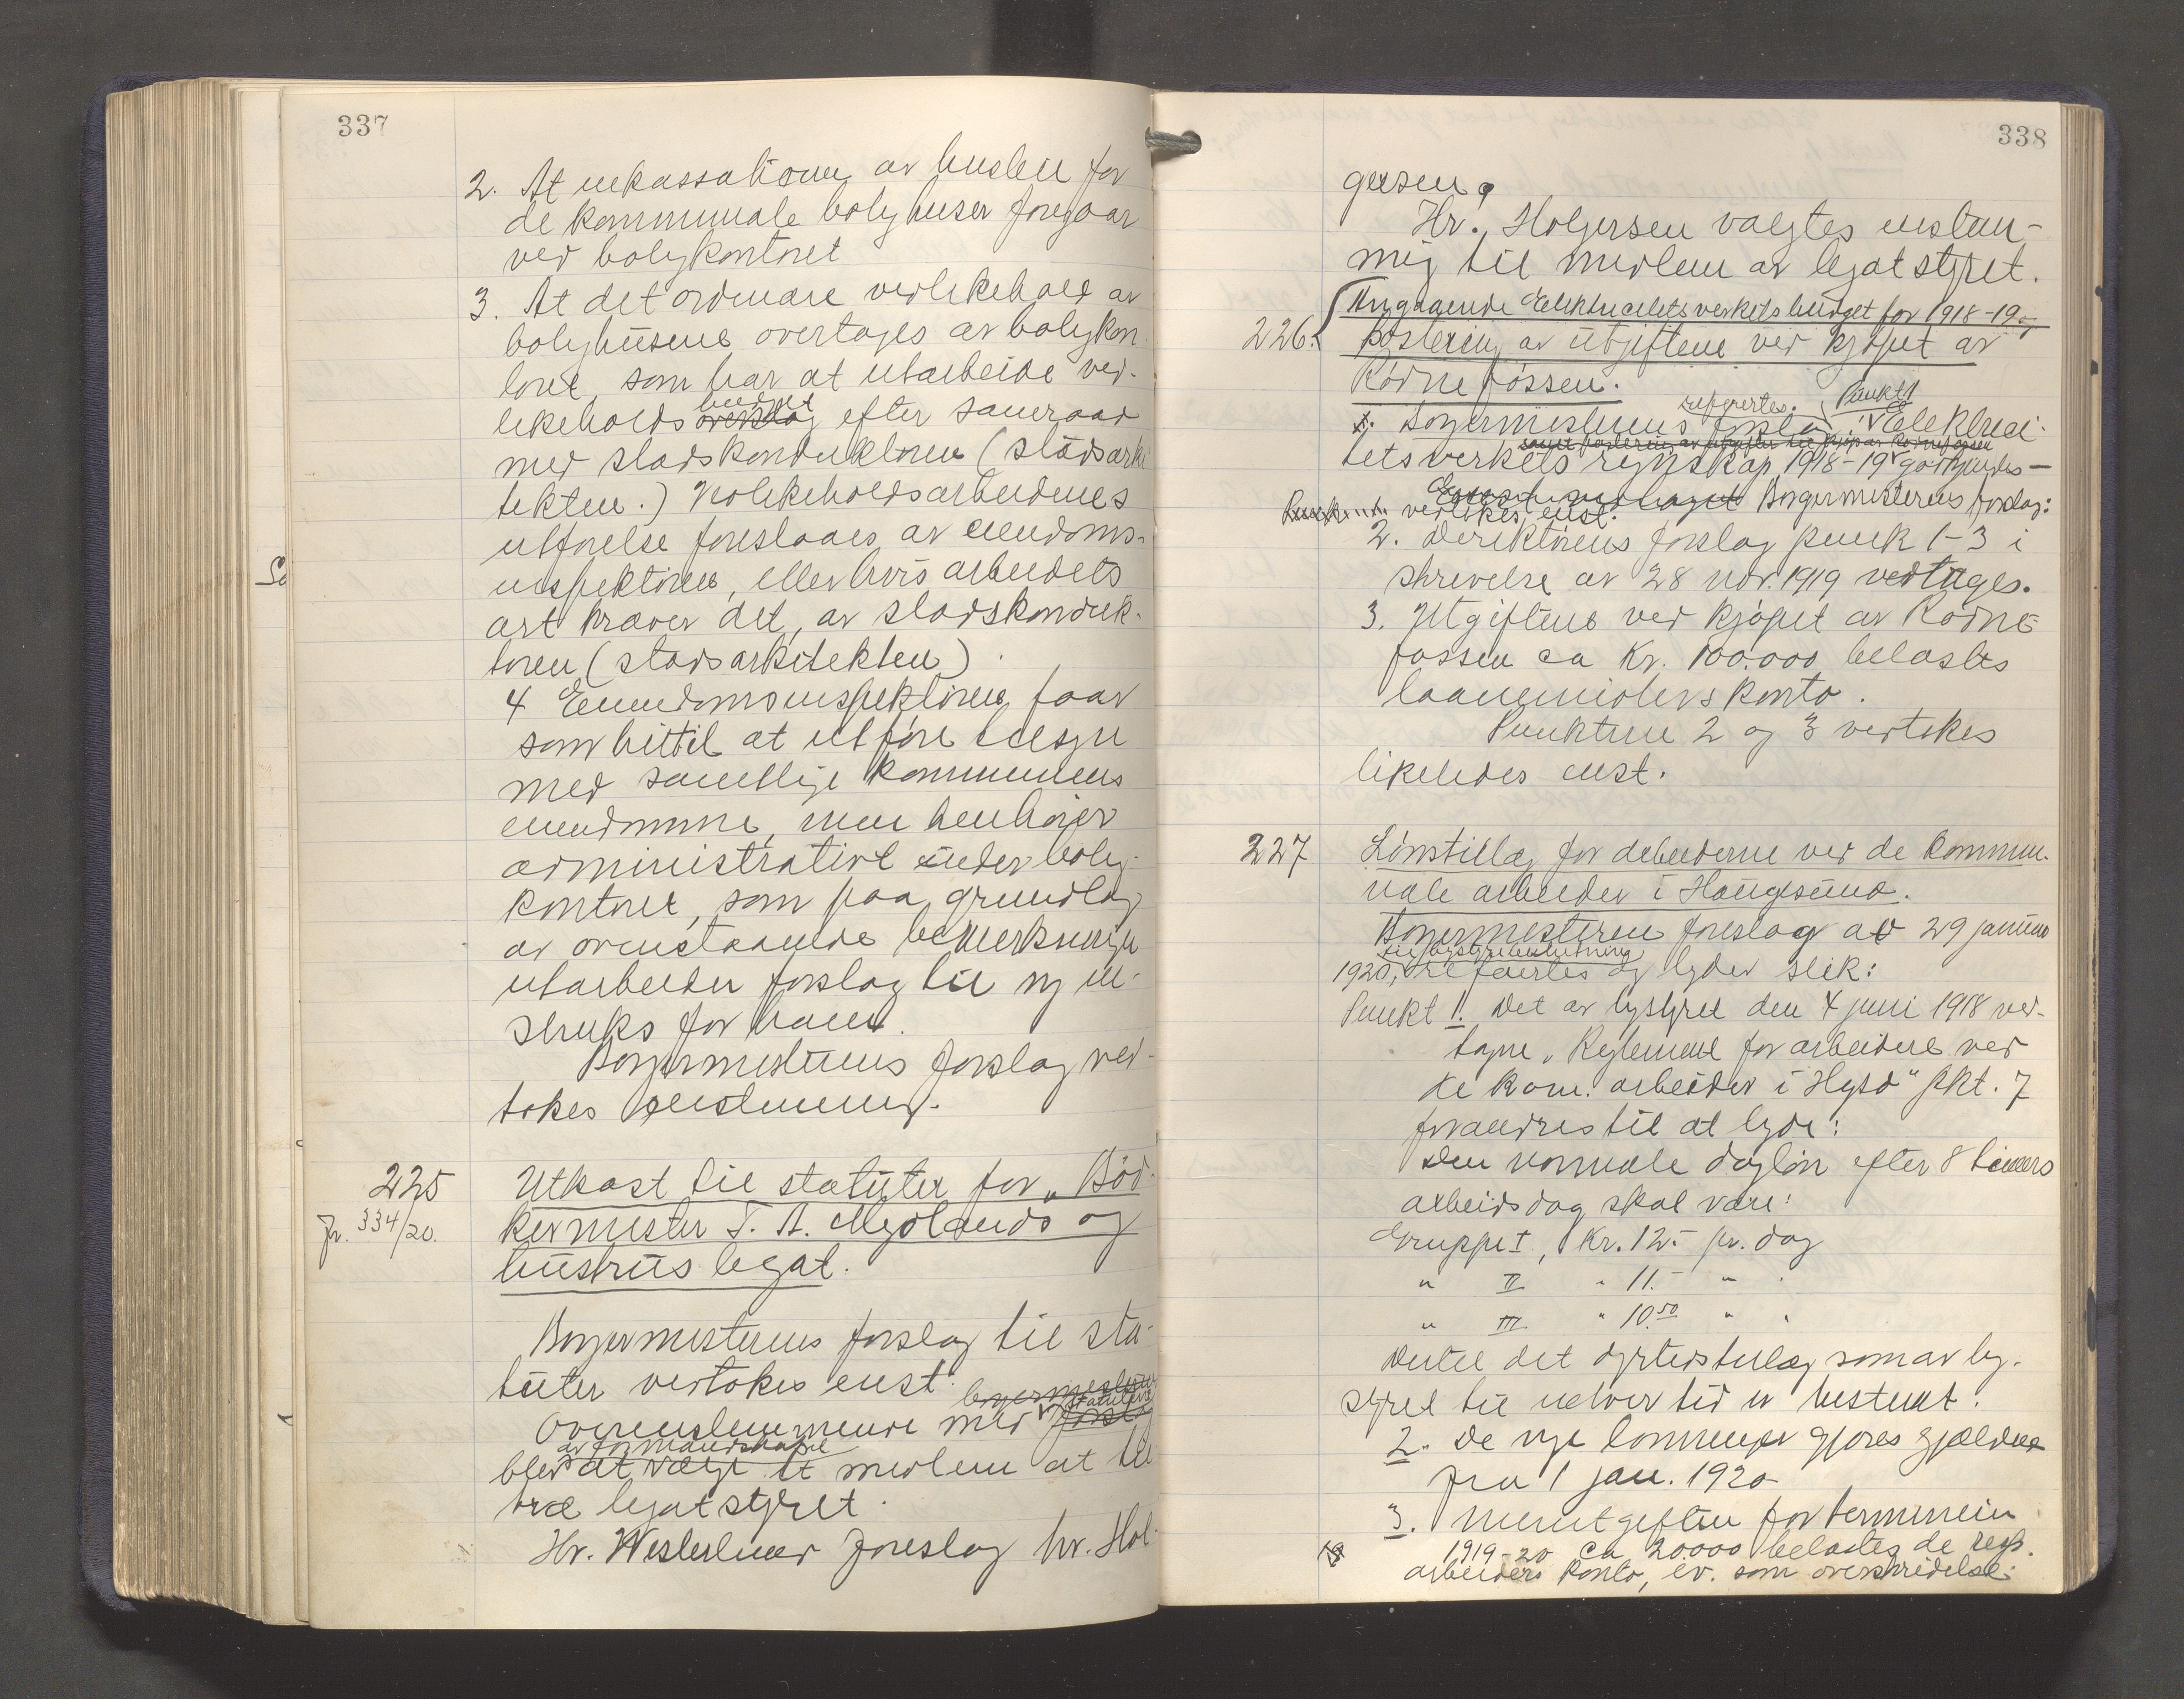 337
2. At inkassationen av husleie for
de kommunale bolighuser foregaar
ved boligkontoret
3. At det ordinære vedlikehold av
bolighusene overtages av boligkon-
toret, som har at utarbeide ved-
likeholdsbudget efter samraad
med stadskonduktøren (stadsarki
tekten.) Vedlikeholdsarbeidenes
utførelse foreslaaes av eiendoms-
inspektøren, eller hvis arbeidets
art kræver det, av stadskonduk-
tøren (stadsarkitekten).
4 Eiendomsinspektøren faar
som hittil at utføre tilsyn
med samtlige kommunens
eiendomme, men henhører
administrativt under bolig-
kontoret, som paa grundlag
av ovenstaaende bemerkninger
utarbeider forslag til ny in-
struks for ham.
Borgermesterens forslag ved-
tokes enstemmig.
225
Jr. 334/20.
Utkast til statuter for "Bød-
kermester T. A. Mejlænds og
hustrus legat.
Borgermesterens forslag til sta-
tuter vedtokes enst.
Overensstemmende med statutene
blev av formandskapet
at vælge et medlem at til
træ legatstyret.
Hr. Westerlund foreslog hr. Hol-
338
gersen.
Hr. Holgersen valgtes enstem-
mig til medlem av legatstyret.
226.
Angaaende Elektricitetsverkets budget for 1918-19,
Postering av utgiftene ved kjøpet av
Rødnefossen.
refereres. Punkt 1
1. Borgermesterens forslag: Elektrici-
samt postering av utgifter til kjøp av Rødnefossen
tetsverkets regnskap 1918-19 godkjendes -
Borgermesterens forslag:
vedtokes enst.
2. Direktørens forslag punk 1-3 i
skrivelse av 28 nov. 1919 vedtages.
3. Utgiftene ved kjøpet av Rødne-
fossen ca Kr. 100.000 belastes
laanemidlers konto.
Punktene 2 og 3 vedtokes
likeledes enst.
227
Lønstillæg for arbeiderne ved de kommu-
nale arbeider i Haugesund.
Borgermesteren foreslag av 29 januar
til bystyrebeslutning
1920, refertes og lyder slik:
Punkt 1. Det av bystyret den 4 juni 1918 ved-
tagne "Reglement for arbeidere ved
de kom. arbeider i Hgsd" pkt. 7
forandres til at lyde:
Den normale dagløn efter 8 timers
arbeidsdag skal være:
Gruppe I, Kr. 12.- pr. dag
" II " 11.- " "
" III " 10.50 " "
Dertil det dyrtidstillæg som av by-
styret til enhver tid er bestemt.
2. De nye lønninger gjøres gjældende
fra 1 jan. 1920
3. Merutgiften for terminen
1919-20 ca 20000 belastes de resp.
arbeiders konto, ev. som overskridelse.